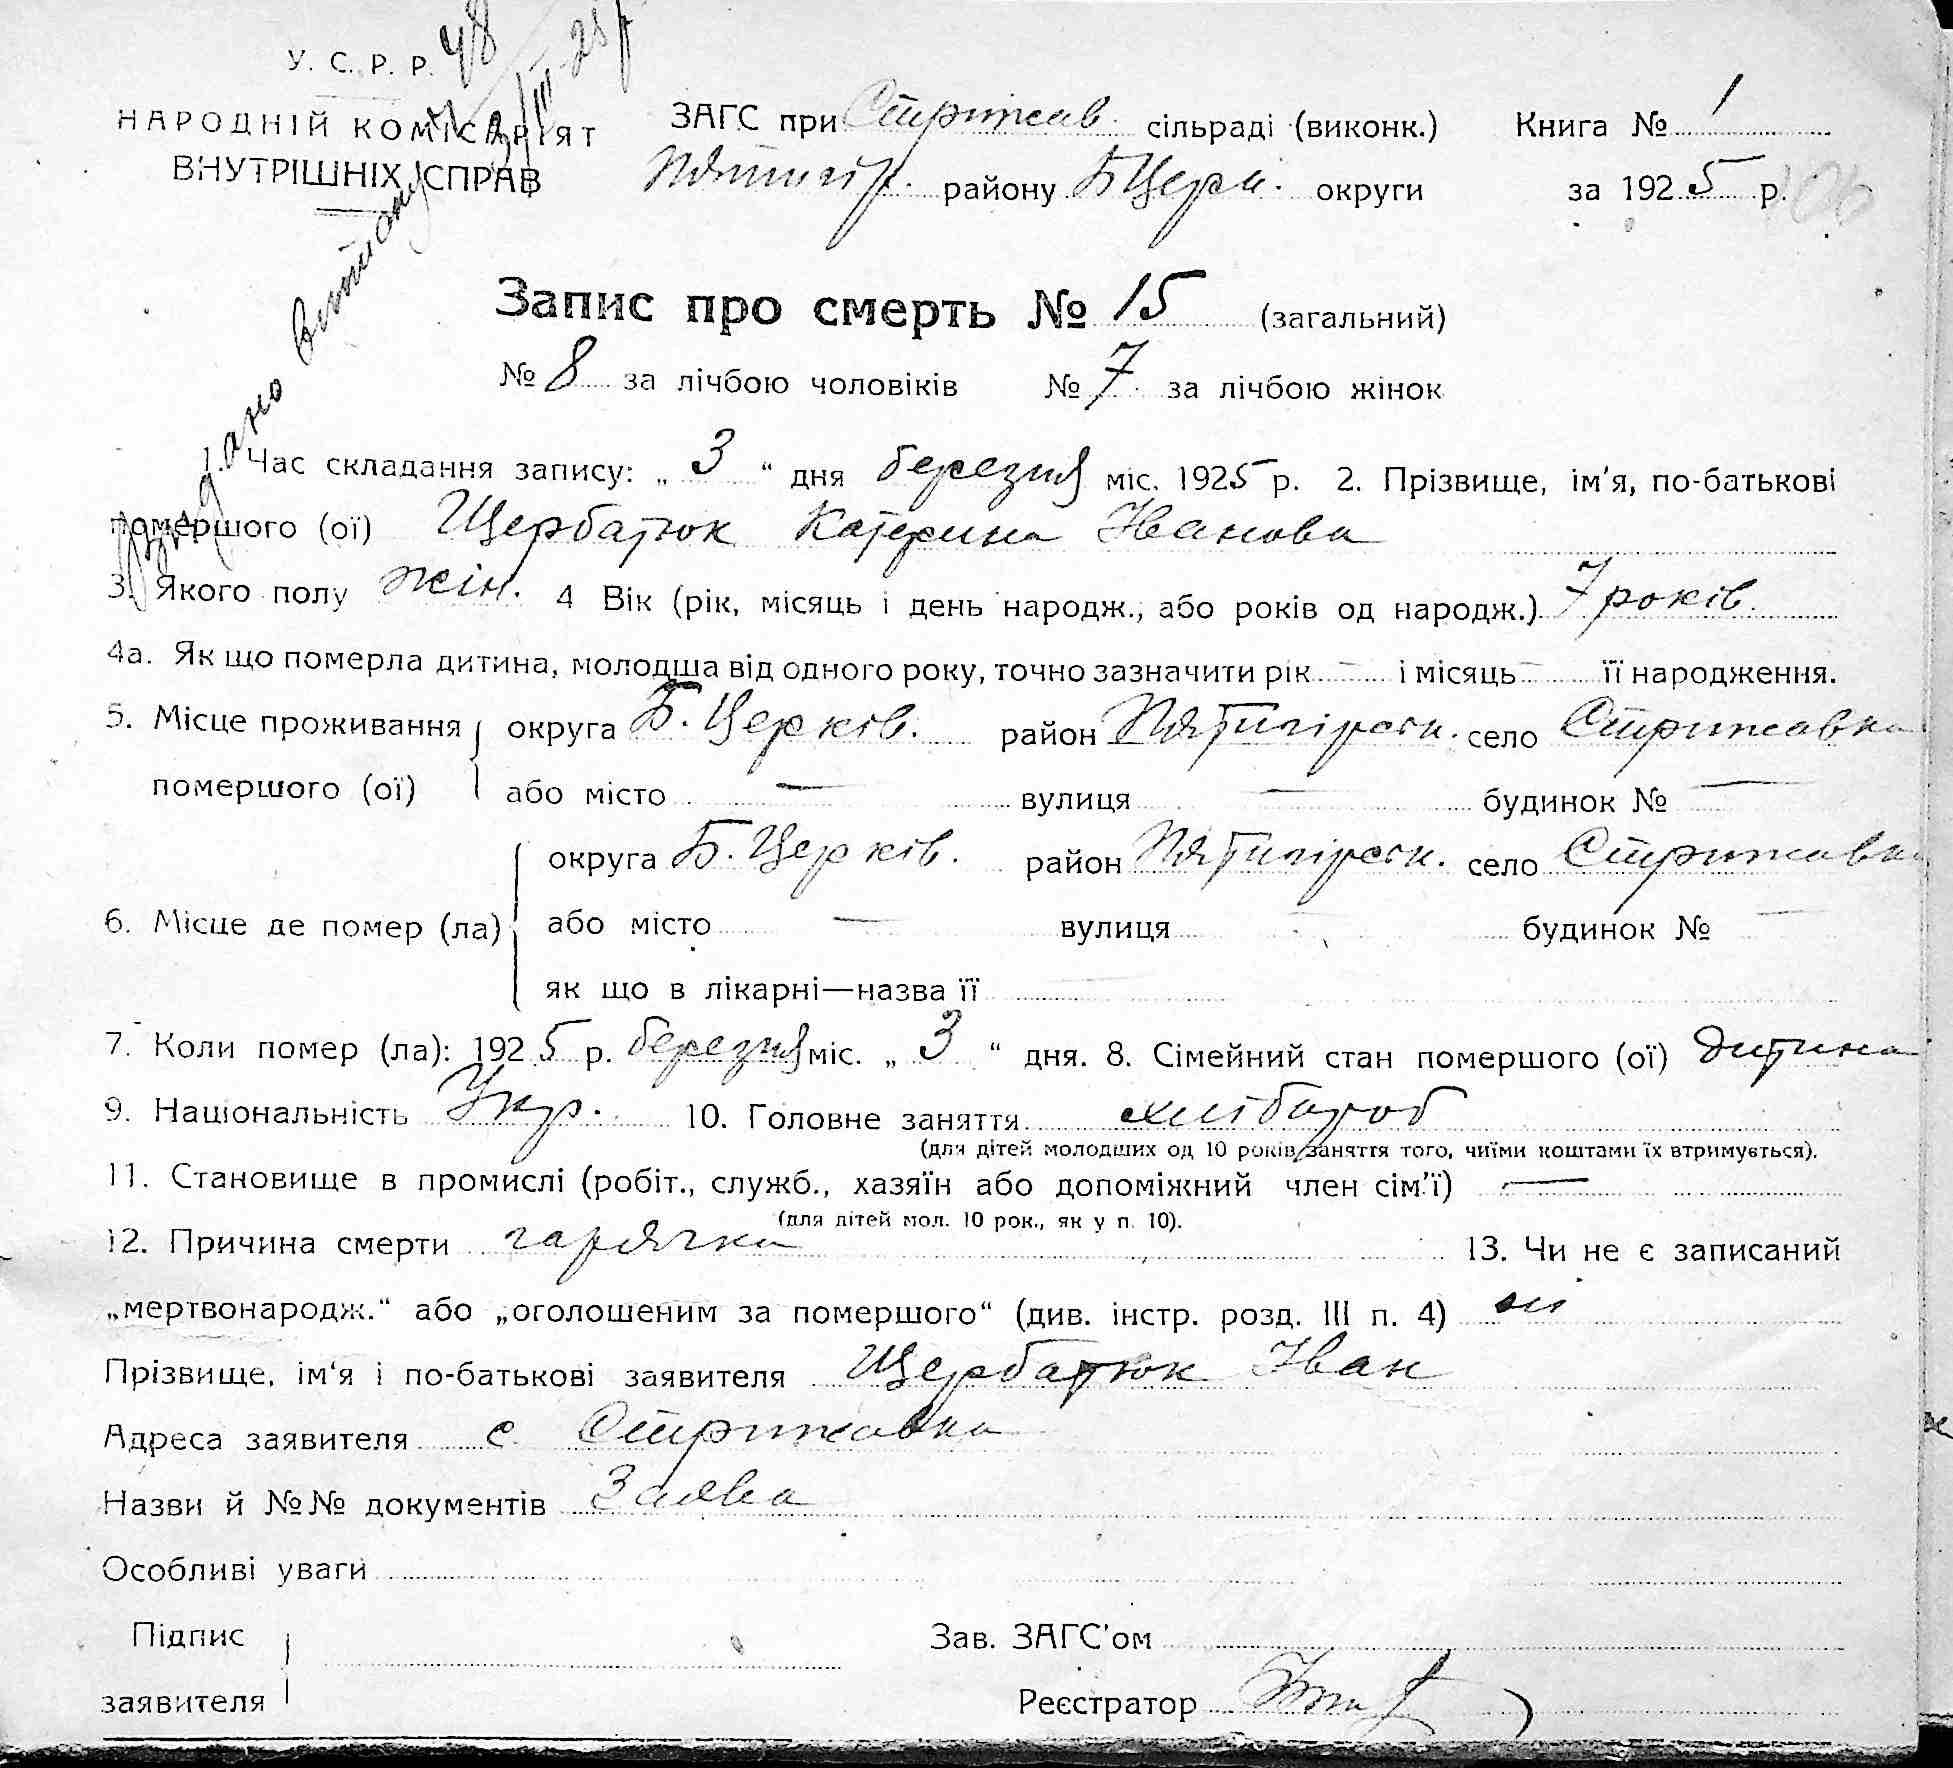 У. С. Р. Р.
НАРОДНІЙ КОМІСАРІЯТ
ВНУТРІШНІХ СПРАВ
Видано витяг
48
ЗАГС при Стрижав. сільраді (виконк.) Книга № 1
Пятигір. району БЦерк. округи за 1925 р.
Запис про смерть № 15 (загальний)
№ 8 за лічбою чоловіків № 7 за лічбою жінок
1. Час складання запису: „ 3 “ дня березня міс. 1925 р. 2. Прізвище, ім'я, по-батькові
помершого (ої) Щербатюк Катерина Іванова
3. Якого полу жін. 4 Вік (рік, місяць і день народж., або років од народж.) 7 років
4а. Як що померла дитина, молодша від одного року, точно зазначити рік — і місяць — її народження.
5. Місце проживання округа Б. Церків. район Пятигірськ. село Стрижавка
помершого (ої) або місто — вулиця — будинок № —
округа Б. Церків. район Пятигірськ. село Стрижавка
6. Місце де помер (ла) або місто — вулиця будинок № —
як що в лікарні—назва її
7. Коли помер (ла): 1925 р. березня міс. „ 3 “ дня. 8. Сімейний стан помершого (ої) дитина
9. Національність Укр. 10. Головне заняття хлібороб
(для дітей молодших од 10 років заняття того, чиїми коштами їх втримується).
11. Становище в промислі (робіт., служб., хазяїн або допоміжний член сім'ї) —
(для дітей мол. 10 рок., як у п. 10).
12. Причина смерти гарячка 13. Чи не є записаний
„мертвонародж.“ або „оголошеним за помершого“ (див. інстр. розд. III п. 4) ні
Прізвище, ім'я і по-батькові заявителя Щербатюк Іван
Адреса заявителя с Стрижавка
Назви й №№ документів Заява
Особливі уваги
Підпис Зав. ЗАГС'ом
заявителя Реєстратор